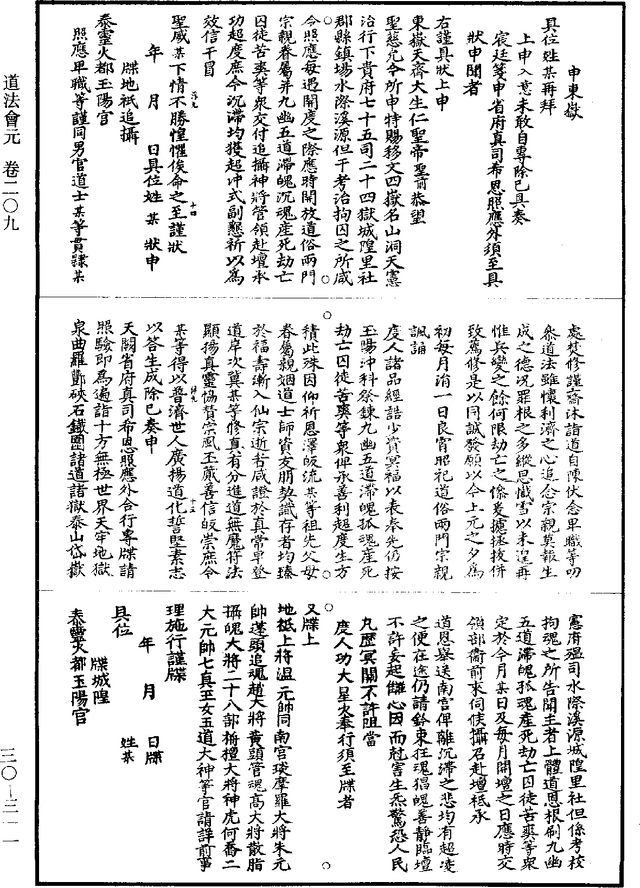 申東嶽
具位姓某再拜
上申入意未敢自專除已具奏
宸廷箋申省府真司希恩照應外須至具
狀申聞者
右謹具狀上申
東嶽天齊大生仁聖帝聖前恭望
聖慈允令所申特賜移文四嶽名山洞天憲
治行下貴府七十五司二十四獄城隍里社
郡縣鎮場水際溪源但干考治拘囚之所咸
令照應每遇開度之際應時開放道俗兩門
宗親眷屬并九幽五道滯魄沉魂產死劫亡
囚徒苦爽等衆交付追攝神將管領赴壇承
功超度庶令沉滯均獲超冲式副懇祈以為
效信干冒
聖威某下情不勝惶懼俟命之至謹狀
年 月 日具位姓 某 狀申
牒地祇追攝
泰靈火都玉陽宮
照應卑職等謹同男官道士某等貫隸某
處焚修謹齋沐詣道自陳伏念卑職等叨
叅道法雖懷利濟之心追念宗親莫報生
成之德況罪根之多縱思懺雪以未遑再
惟兵變之餘何限劫亡之條爰攄拯拔併
致薦修是以同誠發願以今上元之夕為
初每月涓一日良宵昭祀道俗兩門宗親
諷誦
度人諸品經誥少資冥福以表奉先仍按
玉陽沖科祭鍊九幽五道滯魄孤魂產死
劫亡囚徒苦爽等衆俾承善利超度生方
積此殊因仰祈恩澤皈流某等祖先父母
眷屬親姻道士師資友朋契識存者均臻
於福壽漸入仙宗逝者咸證於真常早登
道岸次冀某等修真有分進道無魔符法
顯揚真靈協贊宗風丕蕆善信皈崇庶令
某等得以普濟世人廣揚道化誓堅素志
以答生成除已奏申
天闕省府真司希恩照應外合行專牒請
照驗即為遍詣十方無極世界天牢地獄
泉曲羅酆硤石鐵圍諸道諸獄泰山岱嶽
憲府瘟司水際溪源城隍里社但係考校
拘魂之所告聞主者上體道恩根刷九幽
五道滯魄孤魂產死劫亡囚徒苦爽等衆
定於今月某日及每月開壇之日應時交
領部衛前來伺候攝召赴壇祗承
道恩舉送南宮俾離沉滯之悲均有超凌
之便在途仍請鈐束狂魂猖魄善靜臨壇
不許妄起讎心因而尅害生炁驚恐人民
九歷冥關不許阻當
度人功大星火奉行須至牒者
又牒上
地祇上將溫元帥同南宮琰摩羅大將朱元
帥蓬頭追魂趙大將黄頭管魂高大將散脂
攝魄大將二十八部栴檀大將神虎何喬二
大元帥七真玉女五道大神等官請詳前事
理施行謹牒
年 月 日牒
具位 姓某
牒城隍
泰靈火都玉陽宮
道法會元 卷二〇九
三〇-三一一